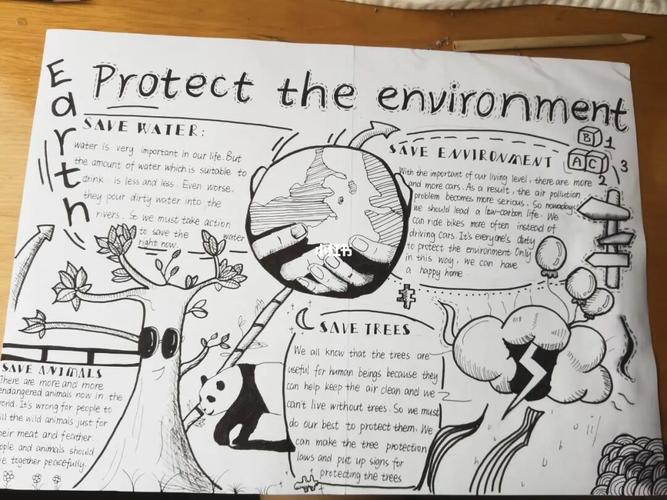 Protect the environment
Earth
SAVE WATER:
water is very important in our life. But
the amount of water which is suitable to
drink is less and less. Even worse,
they pour dirty water into the
rivers. So we must take action
to save the water
right now.
SAVE ENVIRONMENT
With the important of our living level, there are more
and more cars. As a result, the air pollution
problem becomes more serious. So nowadays
we should lead a low-carbon life. We
can ride bikes more often instead of
driving cars. It's everyone's duty
to protect the environment. Only
in this way, we can have
a happy home
B 1
A C 2 3
小红书
SAVE TREES
We all know that the trees are
useful for human beings because they
can help keep the air clean and we
can't live without trees. So we must
do our best to protect them. We
can make the tree protection
laws and put up signs for
protecting the trees
SAVE ANIMALS
There are more and more
endangered animals now in the
world. It's wrong for people to
kill the wild animals just for
their meat and feather.
people and animals should
live together peacefully.